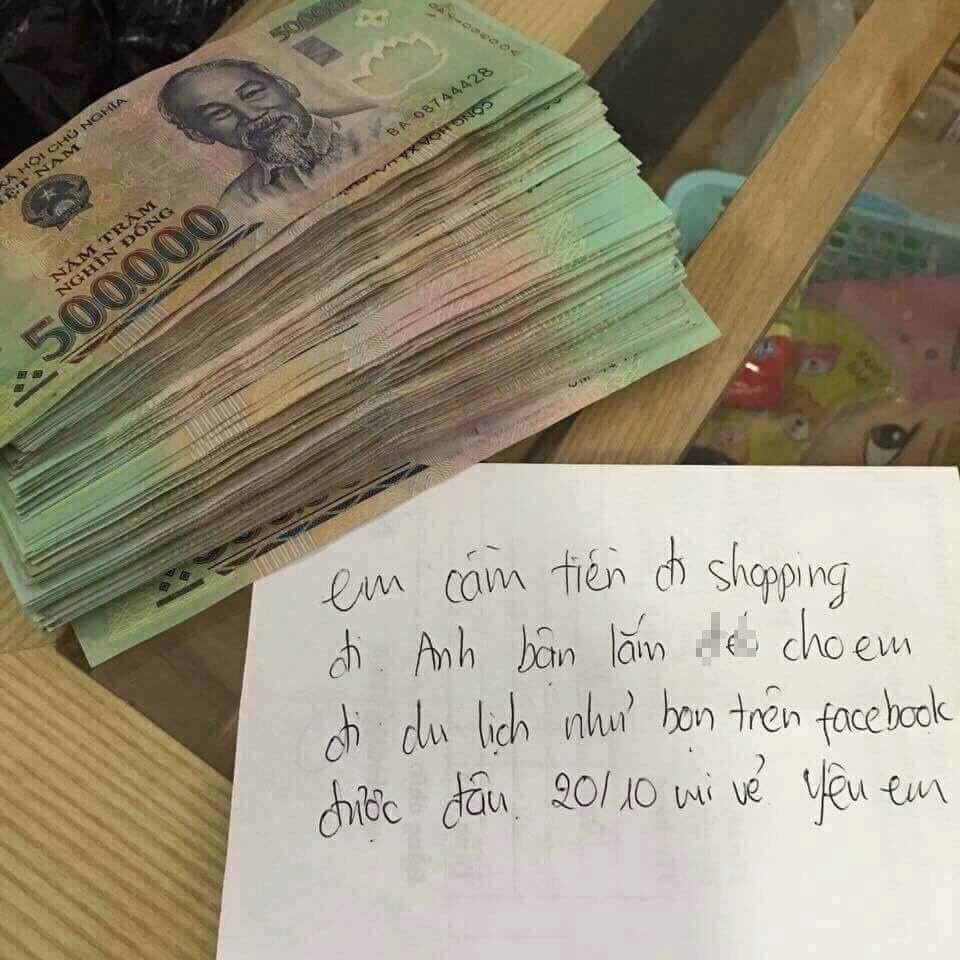 50.000
BA 08744428
XÃ HỘI CHỦ NGHĨA
VIỆT NAM
CỘNG HÒA XÃ
NĂM TRĂM
NGHÌN ĐỒNG
500.000
em cầm tiền đi shopping
đi. Anh bận lắm cho em
đi du lịch như bọn trên facebook
được đâu. 20/10 vui vẻ yêu em